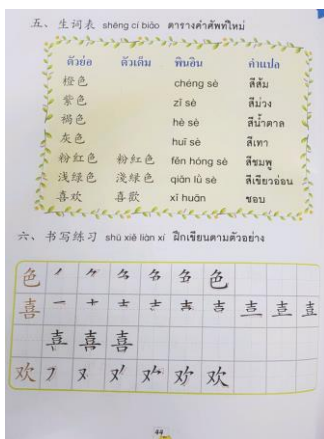 五、生词表 shēng cí biǎo ตารางคำศัพท์ใหม่
ตัวย่อ ตัวเต็ม พินอิน คำแปล
橙色 chéng sè สีส้ม
紫色 zǐ sè สีม่วง
褐色 hè sè สีน้ำตาล
灰色 huī sè สีเทา
粉红色 粉紅色 fěn hóng sè สีชมพู
浅绿色 淺綠色 qiǎn lǜ sè สีเขียวอ่อน
喜欢 喜歡 xǐ huān ชอบ
六、书写练习 shū xiě liàn xí ฝึกเขียนตามตัวอย่าง
色 色
喜 一 十 士 吉
喜 喜 喜
欢 欢
44